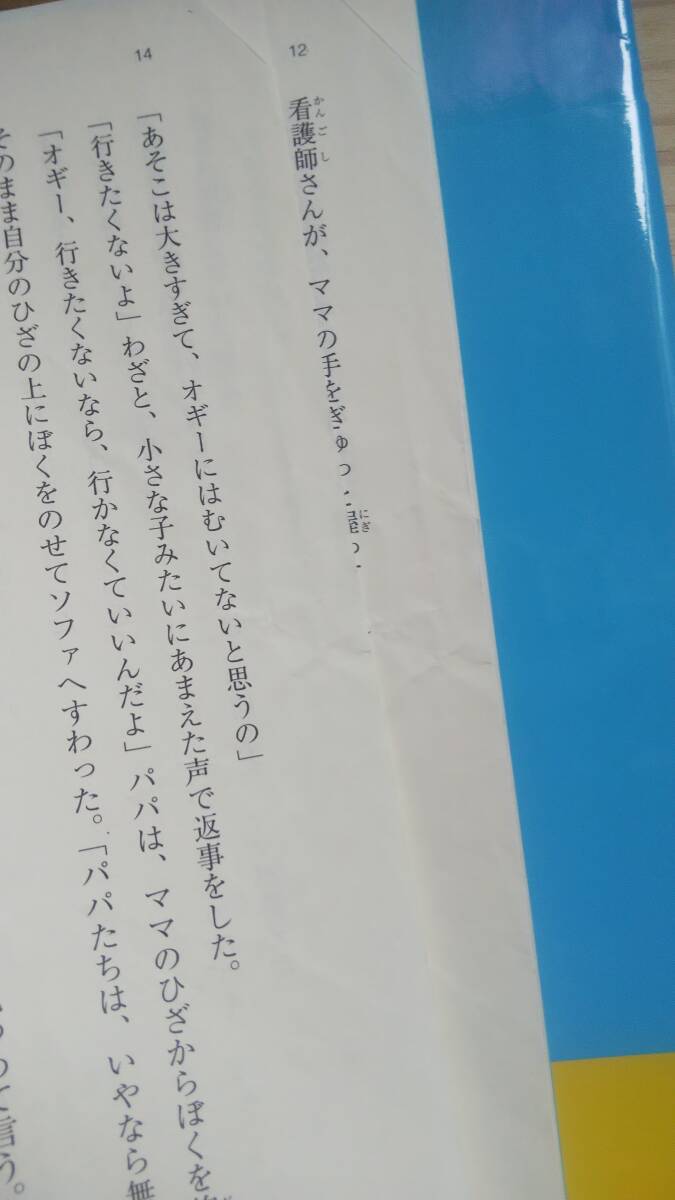 12
看護師さんが、ママの手をぎゅっ
14
「あそこは大きすぎて、オギーにはむいてないと思うの」
「行きたくないよ」わざと、小さな子みたいにあまえた声で返事をした。
「オギー、行きたくないなら、行かなくていいんだよ」パパは、ママのひざからぼくを
そのまま自分のひざの上にぼくをのせてソファへすわった。「パパたちは、いやなら無
て言う。